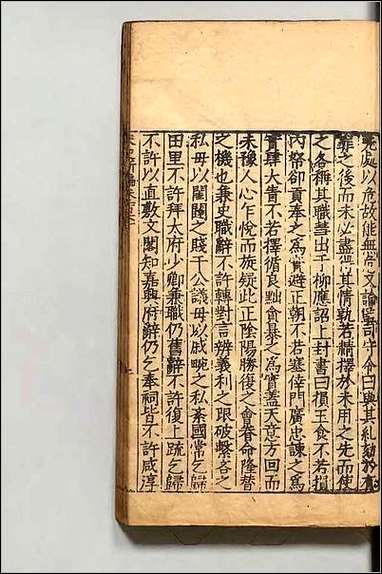 先處以危故能無危又論臺諫乎今日與其糾劾於有
罪之後而未必盡得其情孰若精擇於未用之先而使
之各稱其職彗出于柳應詔上封事曰損玉食不若損
內帑卻貢奉之為實避正朝不若塞倖門廣忠諫之為
實肆大眚不若擇循良黜貪暴之為實蓋天意方回而
未豫人心乍悅而旋疑此正陰陽勝復之會眷命隆替
之機也兼史職辭不許轉對言辨義利之限破繫吝之
私毋以閨闥之賤干公議毋以戚畹之私紊國常乞歸
田里不許拜太府少卿兼職仍舊辭不許復上疏乞歸
不許以直敷文閣知嘉興府辭仍乞奉祠皆不許咸淳